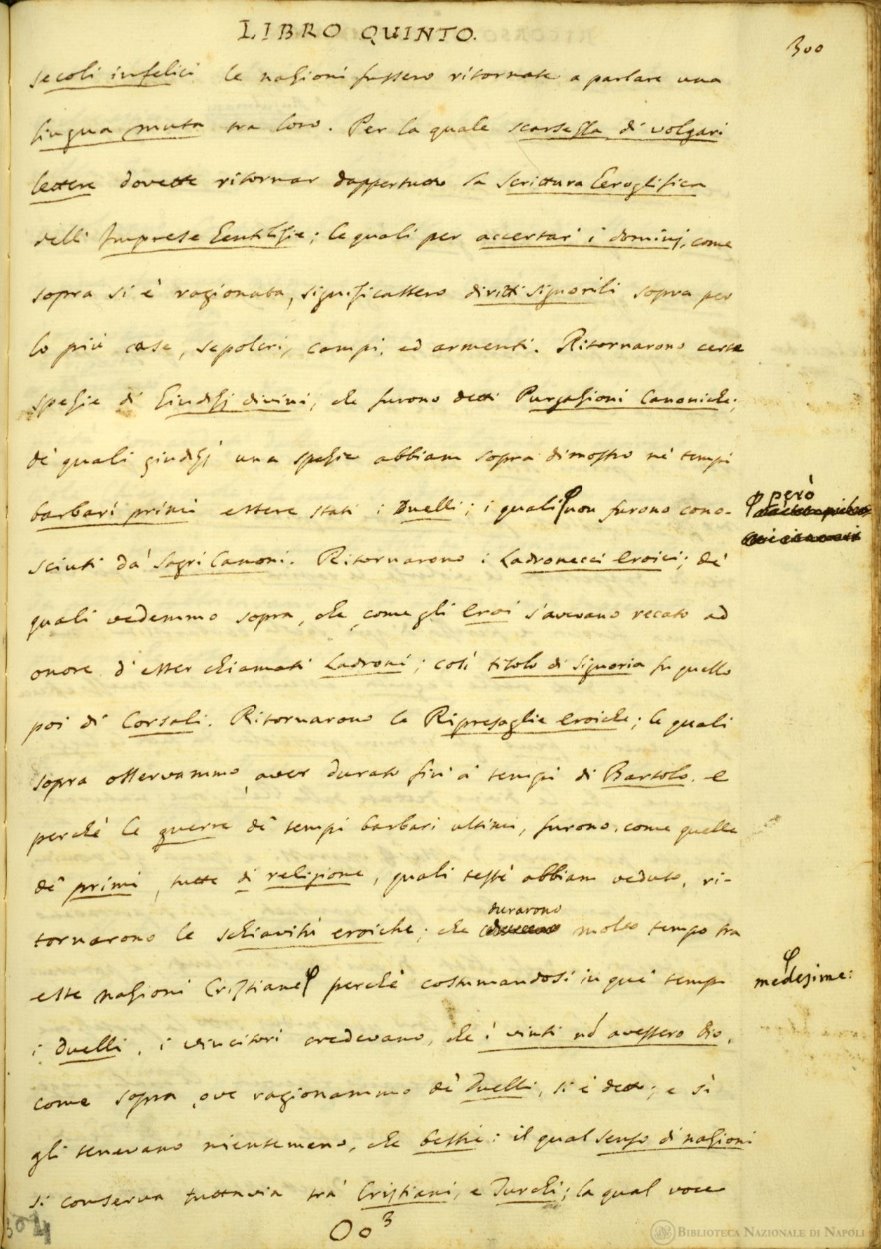 LIBRO QUINTO.
300
secoli infelici le nazioni fussero ritornate a parlare una
lingua muta tra loro. Per la quale scarsezza di volgari
lettere dovette ritornar dappertutto la Scrittura Geroglifica
delli Imprese Gentilizie; le quali per accertar' i dominj, come
sopra si è ragionata, significassero diritti signorili sopra per
lo più case, sepolcri, campi, ed armenti. Ritornarono certe
spezie di Giudizj divini, che furono detti Purgazioni Canoniche;
de' quali giudizj una spezie abbiam sopra dimostro ne' tempi
barbari primi essere stati i Duelli; i quali φ non furono cono-
φ però
sciuti da' Sagri Canoni. Ritornarono i Ladronecci eroici; de'
quali vedemmo sopra, che, come gli Eroi s'avevano recato ad
onore d' esser chiamati Ladroni; così titolo di Signoria fu quello
poi di Corsali. Ritornarono le Ripresaglie eroiche; le quali
sopra osservammo, aver durato fin' a' tempi di Bartolo. e
perchè le guerre de' tempi barbari ultimi, furono, come quelle
de' primi, tutte di religione, quali testè abbiam veduto, ri-
tornarono le schiavitù eroiche; che durarono molto tempo tra
esse nazioni Cristiane φ perchè costumandosi in que' tempi
φ medesime:
i Duelli, i vincitori credevano, che i vinti nō avessero dio,
come sopra, ove ragionammo de' Duelli, si è detto; e sì
gli tenevano nientemeno, che bestie: il qual senso di nazioni
si conserva tuttavia tra' Cristiani, e Turchi; la qual voce
Oo 3
304
BIBLIOTECA NAZIONALE DI NAPOLI